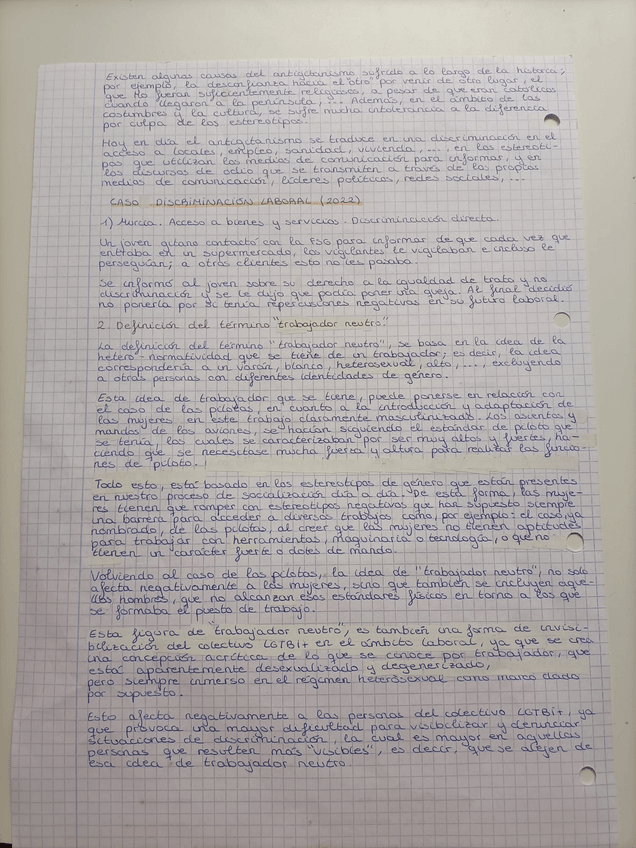 Existen algunas causas del antigitanismo sufrido a lo largo de la historia;
por ejemplo, la desconfianza hacia el "otro" por venir de otro lugar, el
que no fueran suficientemente religiosos, a pesar de que eran católicos
cuando llegaron a la península, ... Además, en el ámbito de las
costumbres y la cultura, se sufre mucha intolerancia a la diferencia
por culpa de los estereotipos.
Hoy en día el antigitanismo se traduce en una discriminación en el
acceso a locales, empleo, sanidad, vivienda, ..., en los estereoti-
pos que utilizan los medios de comunicación para informar, y en
los discursos de odio que se transmiten a través de los propios
medios de comunicación, líderes políticos, redes sociales, ...
CASO DISCRIMINACIÓN LABORAL (2022)
1) Murcia. Acceso a bienes y servicios. Discriminación directa.
Un joven gitano contactó con la FSG para informar de que cada vez que
entraba en un supermercado, los vigilantes le vigilaban e incluso le
perseguían; a otros clientes esto no les pasaba.
Se informó al joven sobre su derecho a la igualdad de trato y no
discriminación y se le dijo que podía poner una queja. Al final decidió
no ponerla por si tenía repercusiones negativas en su futuro laboral.
2. Definición del término "trabajador neutro."
La definición del término "trabajador neutro", se basa en la idea de la
hetero-normatividad que se tiene de un trabajador; es decir, la idea
correspondería a un varón, blanco, heterosexual, alto, ..., excluyendo
a otras personas con diferentes identidades de género.
Esta idea de trabajador que se tiene, puede ponerse en relación con
el caso de las pilotas, en cuanto a la introducción y adaptación de
las mujeres en este trabajo claramente masculinizado. Los asientos y
mandos de los aviones, se hacían siguiendo el estándar de piloto que
se tenía, los cuales se caracterizaban por ser muy altos y fuertes, ha-
ciendo que se necesitase mucha fuerza y altura para realizar las funcio-
nes de piloto.
Todo esto, está basado en los estereotipos de género que están presentes
en nuestro proceso de socialización día a día. De esta forma, las muje-
res tienen que romper con estereotipos negativos que han supuesto siempre
una barrera para acceder a diversos trabajos como, por ejemplo: el caso, ya
nombrado, de las pilotas, al creer que las mujeres no tienen aptitudes
para trabajar con herramientas, maquinaria o tecnología, o que no
tienen un carácter fuerte o dotes de mando.
Volviendo al caso de las pilotas, la idea de "trabajador neutro", no solo
afecta negativamente a las mujeres, sino que también se incluyen aque-
llos hombres, que no alcanzan esos estándares físicos en torno a los que
se formaba el puesto de trabajo.
Esta figura de "trabajador neutro", es también una forma de invisi-
bilización del colectivo LGTBi+ en el ámbito laboral, ya que se crea
una concepción acrítica de lo que se conoce por trabajador, que
está aparentemente desexualizado y degenerizado,
pero siempre inmerso en el régimen heterosexual como marco dado
por supuesto.
Esto afecta negativamente a las personas del colectivo LGTBi+, ya
que provoca una mayor dificultad para visibilizar y denunciar
situaciones de discriminación, la cual es mayor en aquellas
personas que resulten más "visibles", es decir, que se alejen de
esa idea de trabajador neutro.